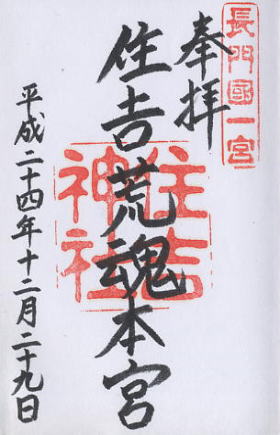 長門國一宮
奉拝
住吉荒魂本宮
住吉神社
平成二十四年十二月二十九日